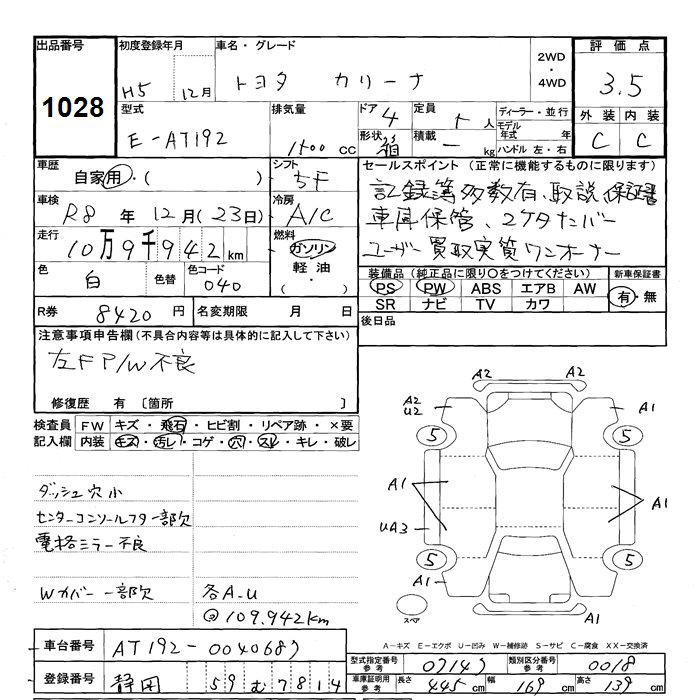 出品番号 初度登録年月 車名・グレード 評価点
1028 H5 12月 トヨタ カリーナ 2WD・4WD 3.5
型式 排気量 ドア 4 定員 5人 ディーラー・並行 外装 内装
E-AT192 1500 cc 形状 箱 積載 ー kg モデル年式 年 ハンドル 左・右 C C
車歴 シフト セールスポイント (正常に機能するものに限ります)
自家用・( ) 5F 記録簿多数有、取説、保証書
車検 冷房 車庫保管、2ケタナンバー
R8 年 12月(23日) A/C ユーザー買取実質ワンオーナー
走行 燃料
10万9千942km ガソリン
軽油・( )
色 白 色替 色コード 040
装備品 (純正品に限り○をつけてください) 新車保証書
PS PW ABS エアB AW 有・無
SR ナビ TV カワ
R券 8420 円 名変期限 月 日 後日品
注意事項申告欄(不具合内容等は具体的に記入して下さい)
左F P/W不良
修復歴 有 [箇所 ]
検査員記入欄 FW キズ・飛石・ヒビ割・リペア跡・×要
内装 キズ・汚レ・コゲ・穴・スレ・キレ・破レ
A2 A2
A2 U2 A1
5 5
A1 A1
UA3
5 5
A1 A1
スペア
A1
ダッシュ穴小
センターコンソールフタ一部欠
電格ミラー不良
Wカバー 一部欠 各A.U
@109.942km
A-キズ E-エクボ U-凹み W-補修跡 S-サビ C-腐食 XX-交換済
車台番号 AT192-0040687
型式指定番号 参考 07147 類別区分番号 参考 0018
登録番号 静岡 59 む 7814
車庫証明用 参考 長さ 445cm 幅 169cm 高さ 139cm